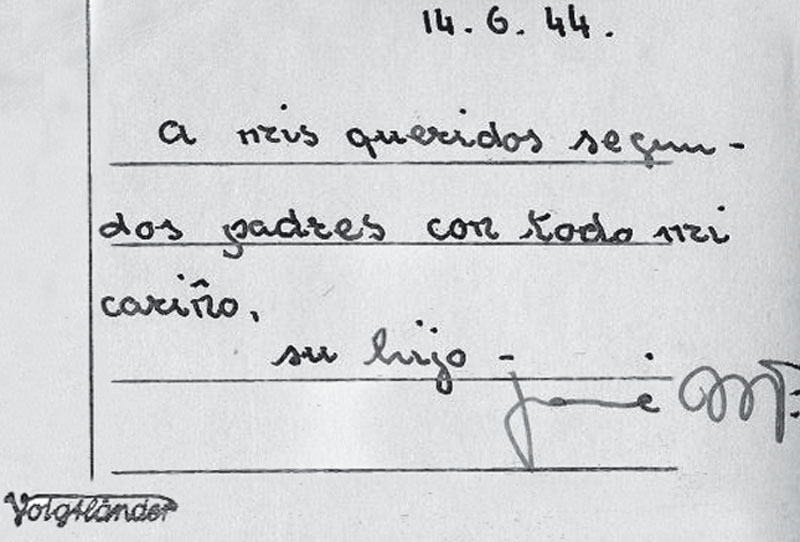 14. 6. 44.
a mis queridos segun-
dos padres con todo mi
cariño,
su hijo -
José Mª
Voigtländer